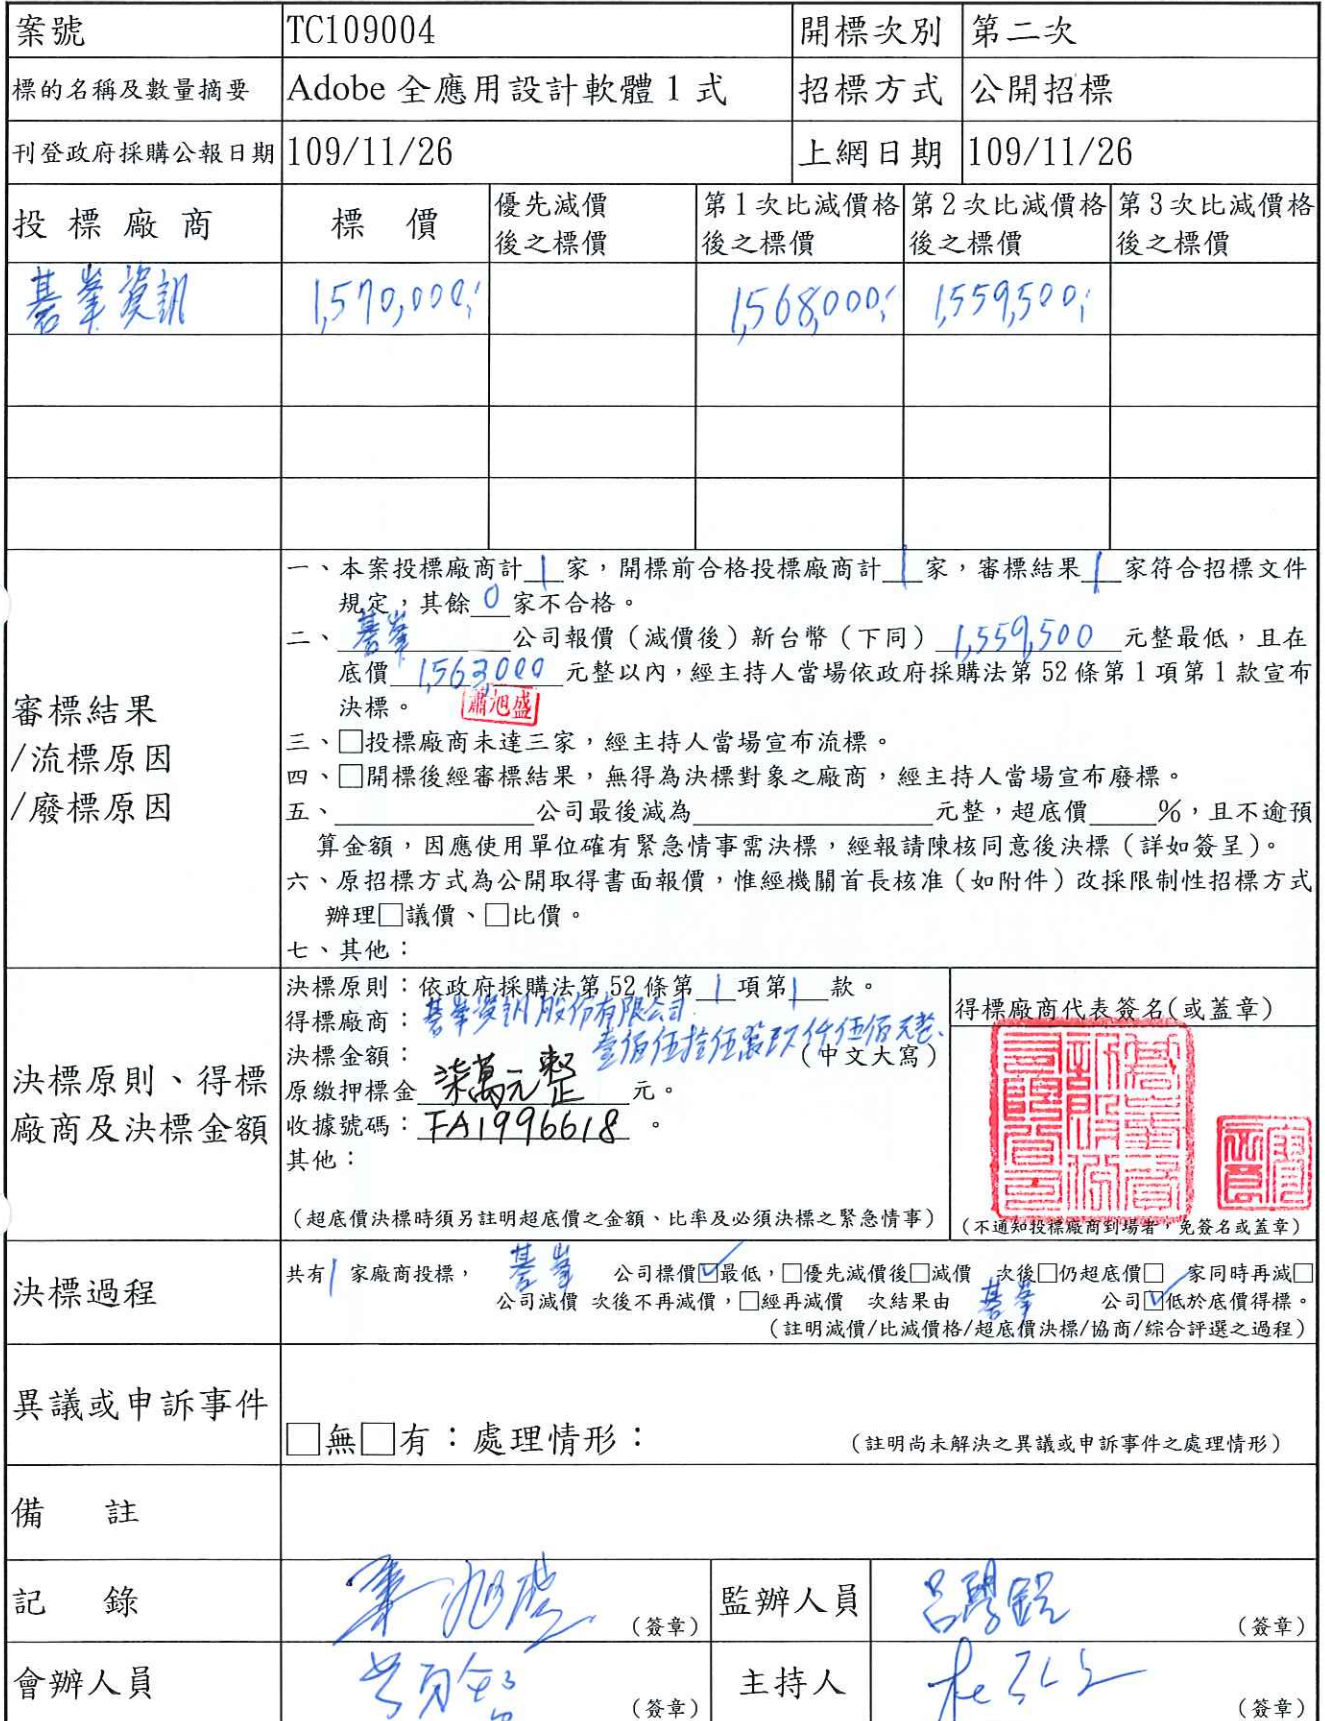 案號 TC109004 開標次別 第二次
標的名稱及數量摘要 Adobe 全應用設計軟體 1 式 招標方式 公開招標
刊登政府採購公報日期 109/11/26 上網日期 109/11/26
投標廠商 標價 優先減價後之標價 第1次比減價格後之標價 第2次比減價格後之標價 第3次比減價格後之標價
碁峯資訊 1,570,000; 1,568,000; 1,559,500;
審標結果
/流標原因
/廢標原因
一、本案投標廠商計1家，開標前合格投標廠商計1家，審標結果1家符合招標文件
規定，其餘0家不合格。
二、碁峯公司報價（減價後）新台幣（下同）1,559,500元整最低，且在
底價1,563,000元整以內，經主持人當場依政府採購法第52條第1項第1款宣布
決標。 蕭旭盛
三、□投標廠商未達三家，經主持人當場宣布流標。
四、□開標後經審標結果，無得為決標對象之廠商，經主持人當場宣布廢標。
五、____公司最後減為____元整，超底價____%，且不逾預
算金額，因應使用單位確有緊急情事需決標，經報請陳核同意後決標（詳如簽呈）。
六、原招標方式為公開取得書面報價，惟經機關首長核准（如附件）改採限制性招標方式
辦理□議價、□比價。
七、其他：
決標原則、得標
廠商及決標金額
決標原則：依政府採購法第52條第1項第1款。
得標廠商：碁峯資訊股份有限公司
決標金額：壹佰伍拾伍萬玖仟伍佰元整（中文大寫）
原繳押標金柒萬元整元。
收據號碼：FA1996618。
其他：
（超底價決標時須另註明超底價之金額、比率及必須決標之緊急情事）
得標廠商代表簽名(或蓋章)
（不通知投標廠商到場者，免簽名或蓋章）
決標過程
共有1家廠商投標，碁峯公司標價☑最低，□優先減價後□減價 次後□仍超底價□ 家同時再減□
公司減價 次後不再減價，□經再減價 次結果由 碁峯 公司☑低於底價得標。
（註明減價/比減價格/超底價決標/協商/綜合評選之過程）
異議或申訴事件
□無□有：處理情形： （註明尚未解決之異議或申訴事件之處理情形）
備 註
記 錄 （簽章） 監辦人員 （簽章）
會辦人員 （簽章） 主持人 （簽章）